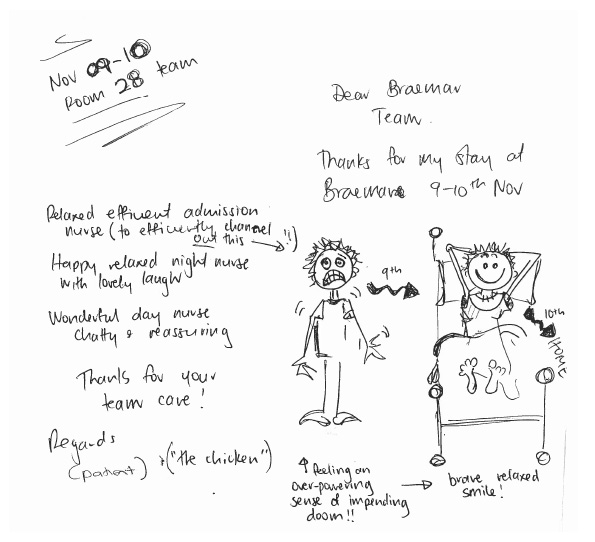 Nov 09-10
Room 28 team
Dear Braemar
Team.
Thanks for my stay at
Braemar 9-10th Nov
Relaxed efficient admission
nurse (to efficiently channel
out this → !!)
Happy relaxed night nurse
with lovely laugh
Wonderful day nurse
chatty & reassuring
Thanks for your
team care!
Regards
(patient) + ("the chicken")
9th
10th
HOME
↑ feeling an
over-powering
sense of impending
doom!!
→ brave relaxed
smile!